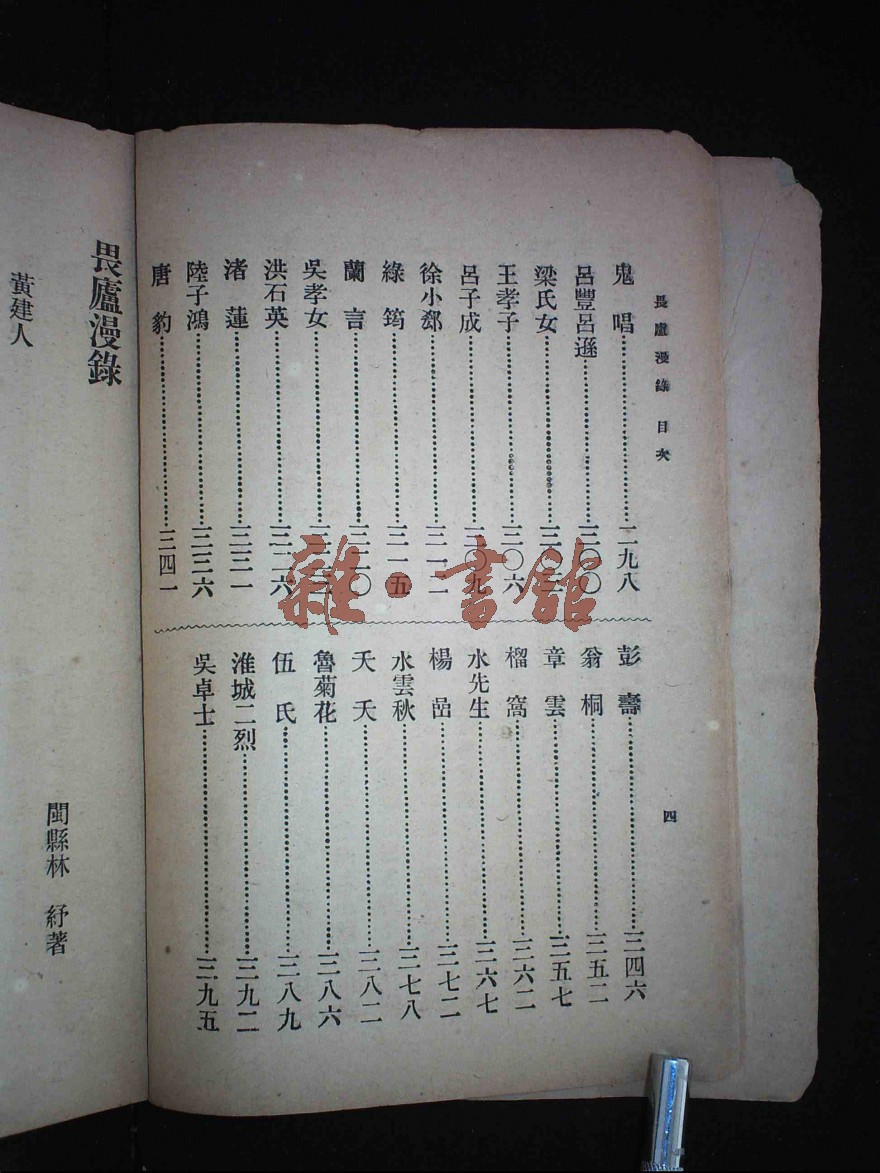 畏廬漫錄 目次
鬼唱……二九八
呂豐呂遜……三〇〇
梁氏女……三〇
王孝子……三〇六
呂子成……三〇九
徐小郄……三一二
綠筠……三一五
蘭言……三二〇
吳孝女……三二
洪石英……三二六
渚蓮……三三一
陸子鴻……三三六
唐豹……三四一
彭壽……三四六
翁桐……三五二
章雲……三五七
榴窩……三六二
水先生……三六七
楊喦……三七二
水雲秋……三七八
夭夭……三八二
魯菊花……三八六
伍氏……三八九
淮城二烈……三九二
吳卓士……三九五
四
畏廬漫錄
閩縣林 紓著
黃建人
雜·書館